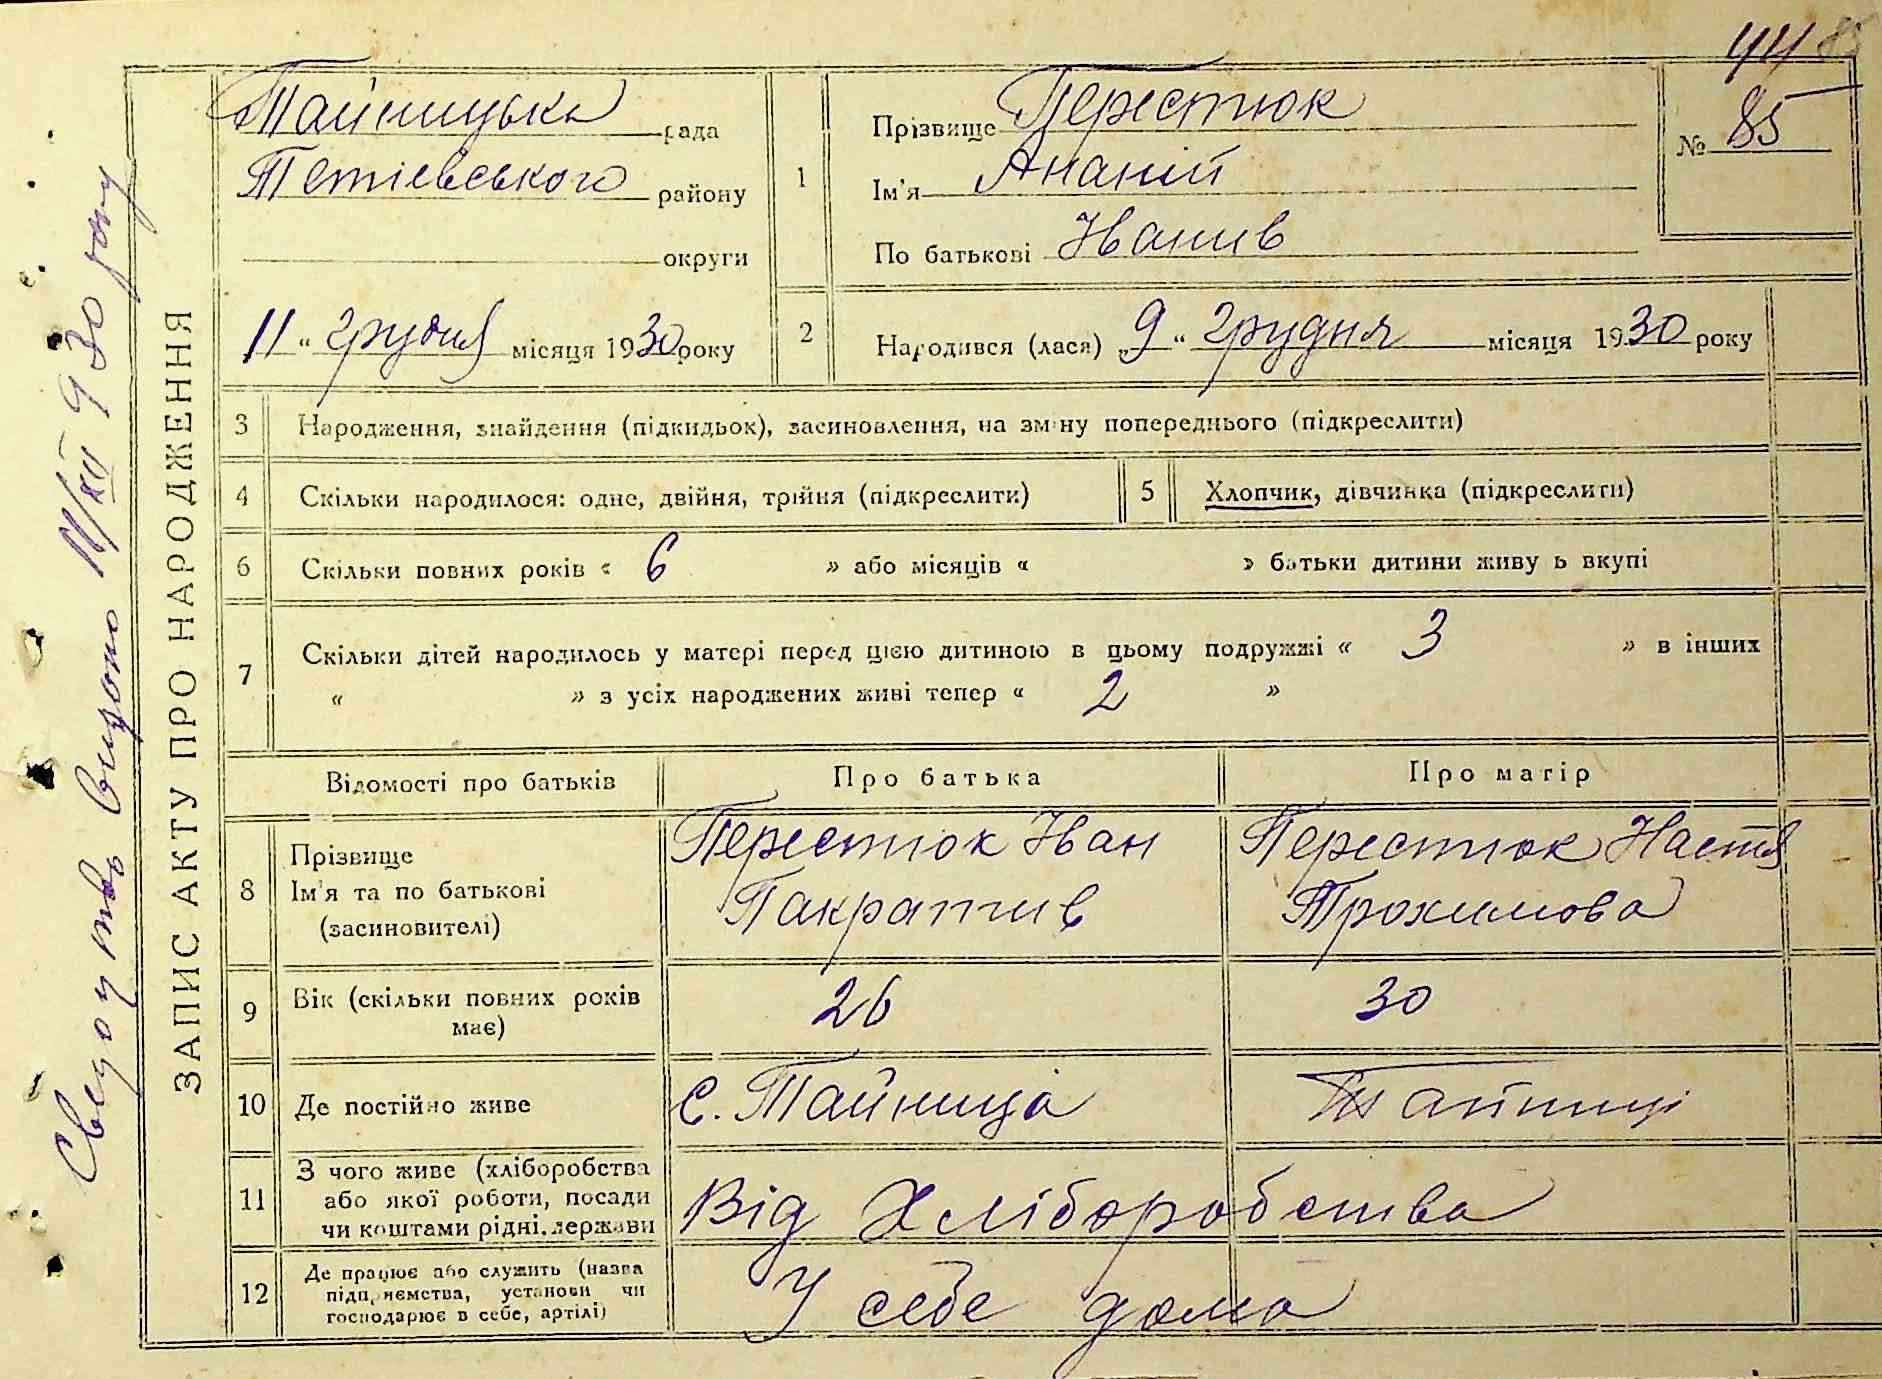 44
Тайницька рада
Тетіевського району
округи
11 " грудня місяця 1930 року
1
Прізвище Перестюк
Ім'я Ананій
По батькові Іванив
№ 85
2
Народився (лася) „9 " грудня місяця 1930 року
ЗАПИС АКТУ ПРО НАРОДЖЕННЯ
Свідоцтво видано 11/XII 930 року
3 Народження, знайдення (підкидьок), засиновлення, на зміну попереднього (підкреслити)
4 Скільки народилося: одне, двійня, трійня (підкреслити)
5 Хлопчик, дівчинка (підкреслити)
6 Скільки повних років « 6 » або місяців « » батьки дитини живу ь вкупі
7 Скільки дітей народилось у матері перед цією дитиною в цьому подружжі « 3 » в інших
« » з усіх народжених живі тепер « 2 »
Відомості про батьків Про батька Про матір
8 Прізвище
Ім'я та по батькові
(засиновителі)
Перестюк Іван
Пакратив
Перестюк Настя
Трохимова
9 Вік (скільки повних років
має)
26 30
10 Де постійно живе с. Тайниця Тайниці
11 З чого живе (хліборобства
або якої роботи, посади
чи коштами рідні, держави
Від Хліборобства
12 Де працює або служить (назва
підприємства, установи чи
господарює в себе, артілі)
У себе дома